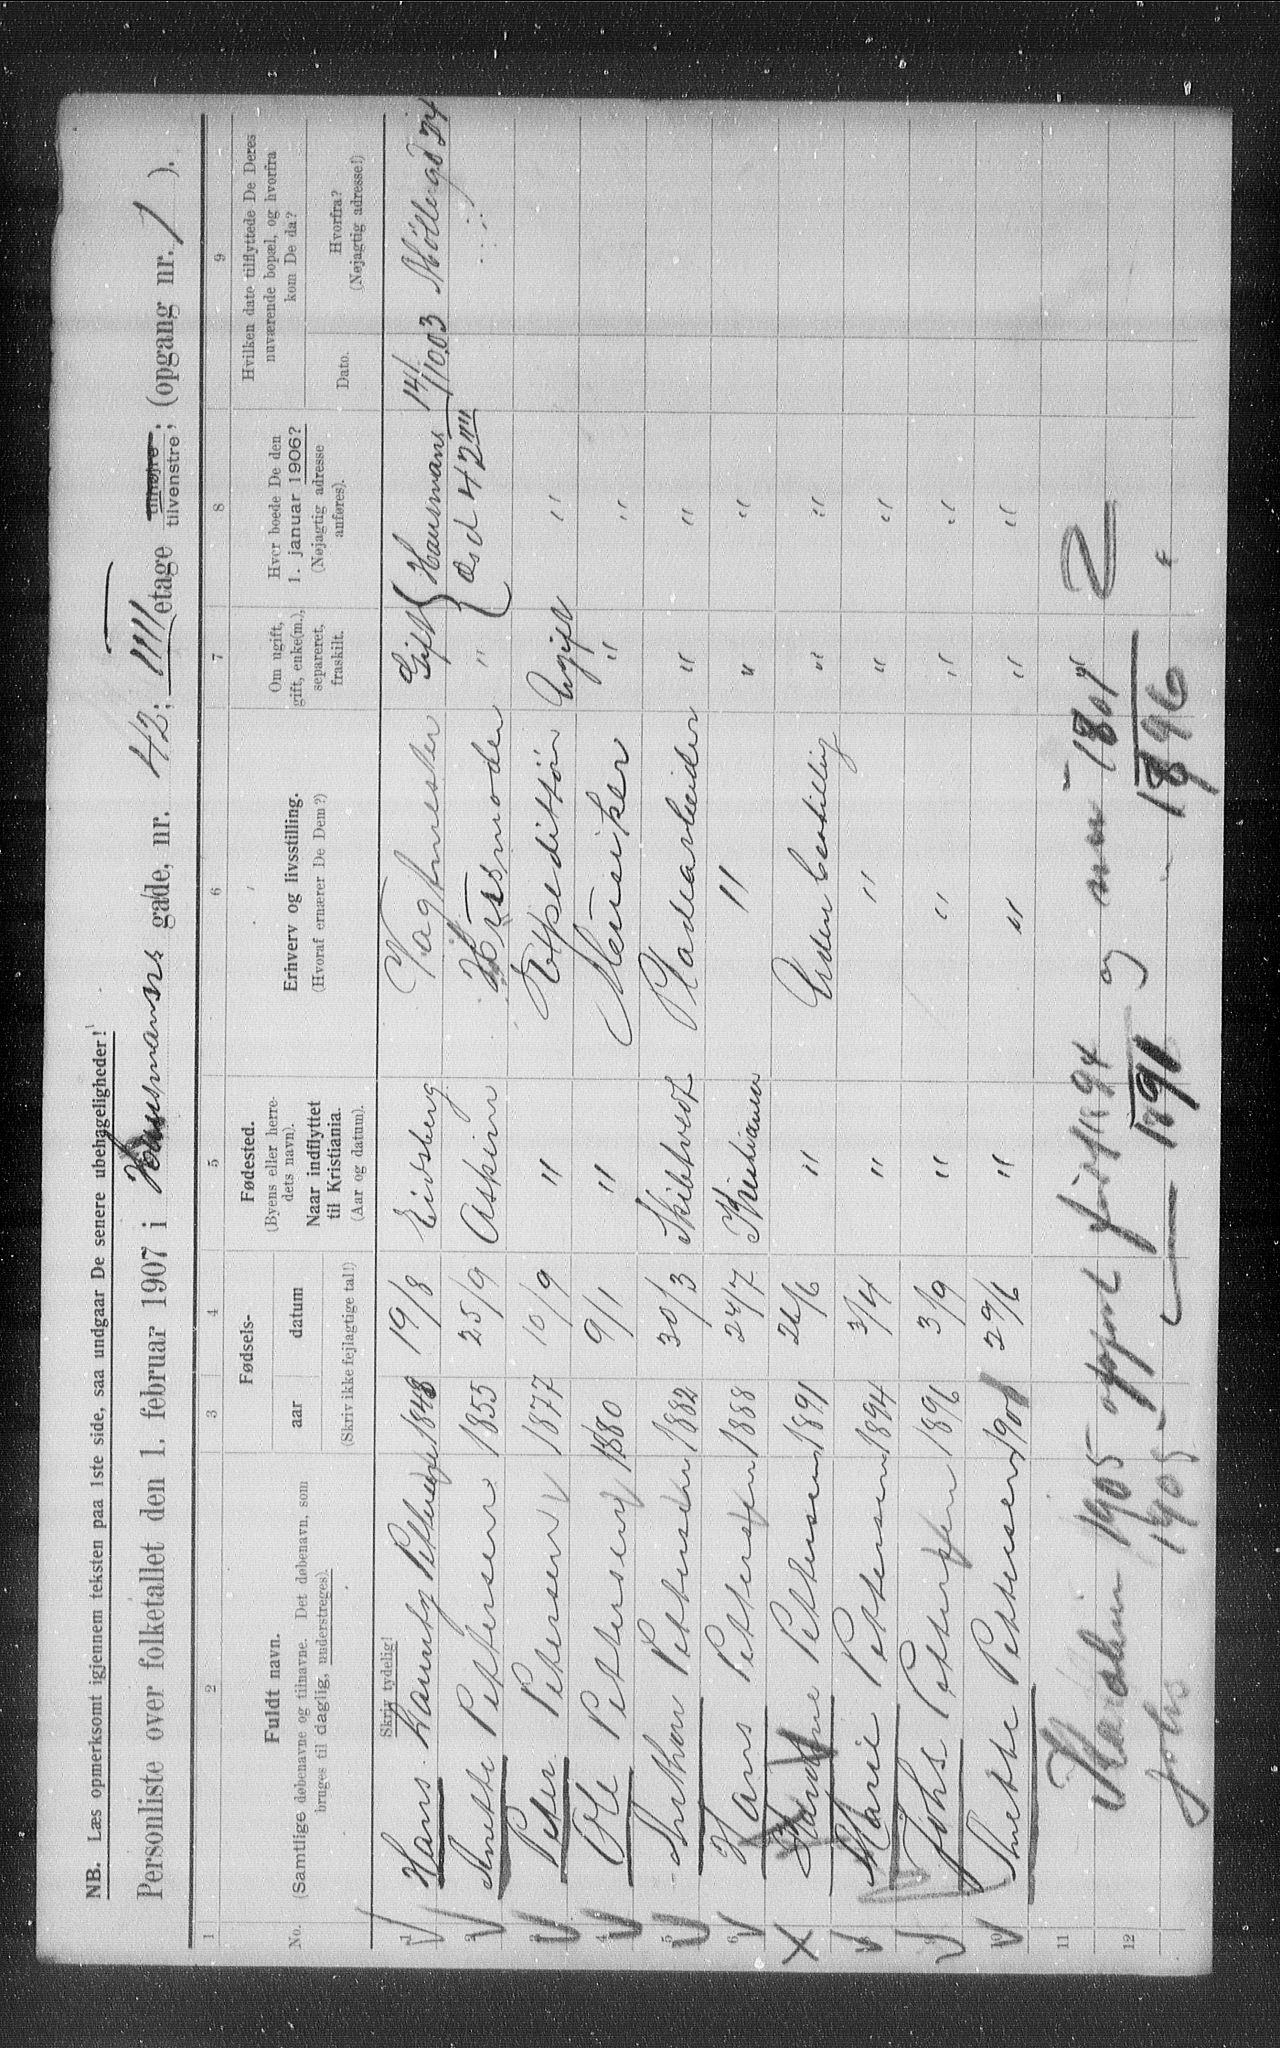 NB. Læs opmerksomt igjennem teksten paa 1ste side, saa undgaar De senere ubehageligheder!
Personliste over folketallet den 1. februar 1907 i Hausmanns gade, nr. 42; IIII etage tilhøire tilvenstre; (opgang nr. 1 ).
1 2 3 4 5 6 7 8 9
No.
Fuldt navn.
(Samtlige døbenavne og tilnavne. Det døbenavn, som
bruges til daglig, understreges).
Skriv tydelig!
Fødsels-
aar datum
(Skriv ikke fejlagtige tal!)
Fødested.
(Byens eller herre-
dets navn).
Naar indflyttet
til Kristiania.
(Aar og datum).
Erhverv og livsstilling.
(Hvoraf ernærer De Dem?)
Om ugift,
gift, enke(m.),
separeret,
fraskilt.
Hvor boede De den
1. januar 1906?
(Nøjagtig adresse
anføres).
Hvilken date tilflyttede De Deres
nuværende bopæl, og hvorfra
kom De da?
Dato.
Hvorfra?
(Nøjagtig adresse!)
1 Hans Lauritz Pettersen 1848 19/8 Eidsberg Vagtmester Gift { Hausmans 14/11 03 Möllergd 24
2 Anette Pettersen 1855 25/9 Askim Husmoder " gd 42 IIII
3 Peter Petersen 1877 10/9 " Expeditför Ugift "
4 Ole Pettersen 1880 9/1 " Musiker " "
5 Arthur Pettersen 1882 30/3 Skibtvedt Pladearbeider " "
6 Hans Pettersen 1888 24/7 Kristiania " " "
Pettersen 1891 26/6 " Uden bestilling " "
8 Marie Pettersen 1894 3/4 " " " "
9 Johs Pettersen 1896 3/9 " " " "
10 Anette Pettersen 1901 29/6 " " " "
11 1905 opført født 94 og nu 1891 2
12 Johs 1905 - 1891 - 1896